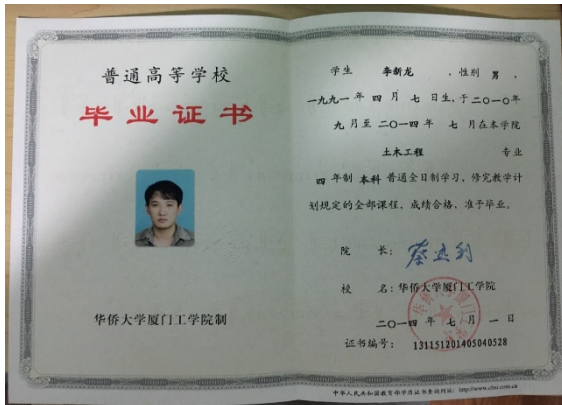 普通高等学校
毕业证书
华侨大学厦门工学院制
学生 李新龙 ，性别 男，
一九九一年 四 月 七 日生，于二〇一〇年
九 月至 二〇一四年 七 月在本学院
土木工程 专业
四 年制 本科 普通全日制学习，修完教学计
划规定的全部课程，成绩合格，准予毕业。
院 长：
校 名：华侨大学厦门工学院
二〇一四 年 七 月 一 日
证书编号： 131151201405040528
中华人民共和国教育部学历证书查询网址：http://www.chsi.com.cn